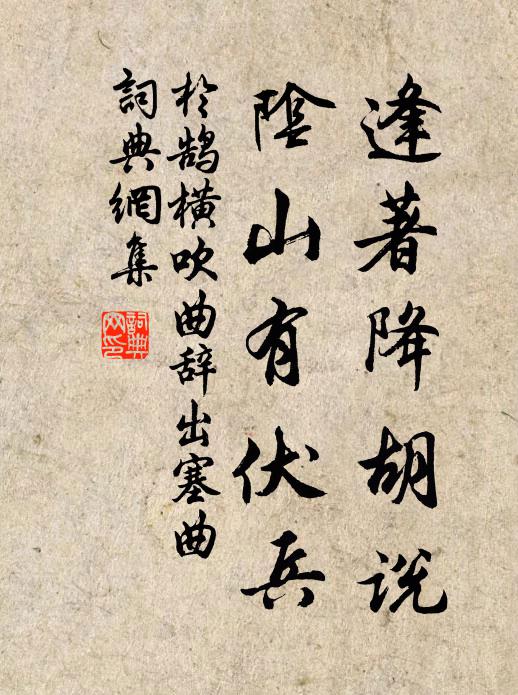 逢著降胡说
陰山有伏兵
於鹄横吹曲辞出塞曲
詞典網集
詞典
网印